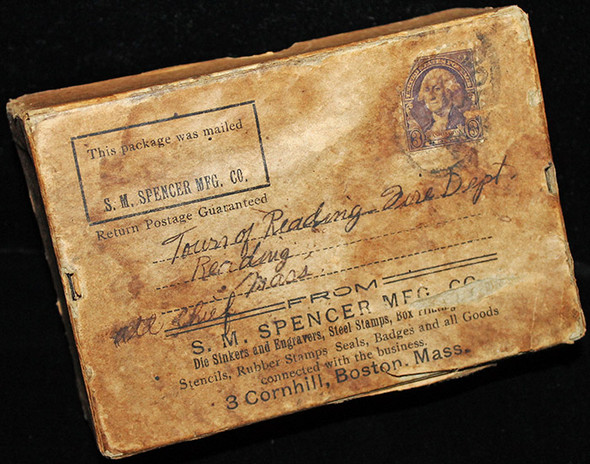 This package was mailed
S. M. SPENCER MFG. CO.
Return Postage Guaranteed
3 3
Town of Reading Fire Dept.
Reading
Mass
att Chief
FROM
S. M. SPENCER MFG. CO.
Die Sinkers and Engravers, Steel Stamps, Box
Stencils, Rubber Stamps Seals, Badges and all Goods
connected with the business.
3 Cornhill, Boston. Mass.